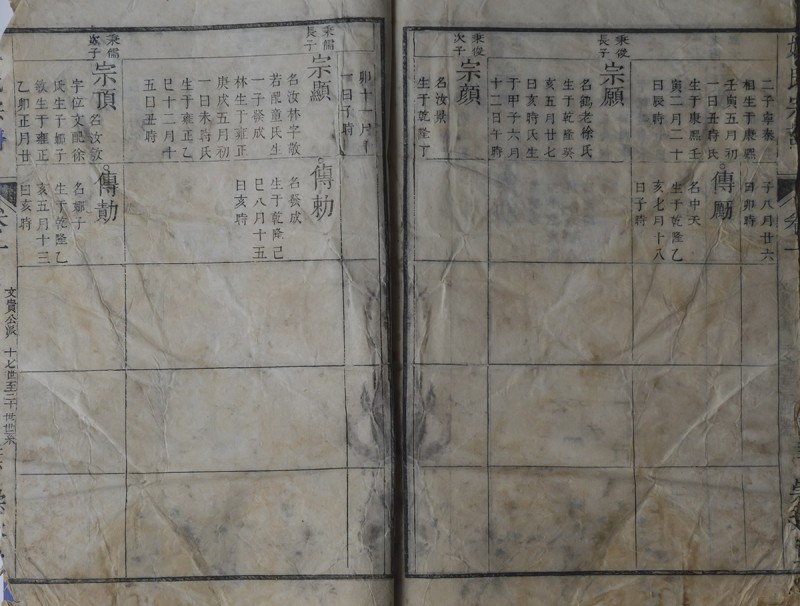 二子寧泰
相生于康熙
壬寅五月初
一日丑時氏
生于康熙壬
寅二月二十
日辰時
子八月廿六
日卯時
傳勵
名中天
生于乾隆乙
亥七月十八
日子時
秉俊
長子
宗願
名鶴老徐氏
生于乾隆癸
亥五月廿七
日亥時氏生
于甲子六月
十二日午時
秉俊
次子
宗顏
名汝景
生于乾隆丁
卯十一月
一日子時
秉儒
長子
宗顯
名汝林字敬
若配童氏生
一子發成
林生于雍正
庚戌五月初
一日未時氏
生于雍正乙
巳十二月十
五日丑時
傳勅
名發成
生于乾隆己
巳八月十五
日亥時
秉儒
次子
宗頂
名汝敬
字位文配徐
氏生子娜子
敬生于雍正
乙卯正月廿
日亥時
傳勣
名娜子
生于乾隆乙
亥五月十三
日亥時
卷一
文貴公派
十七世至二十世世系